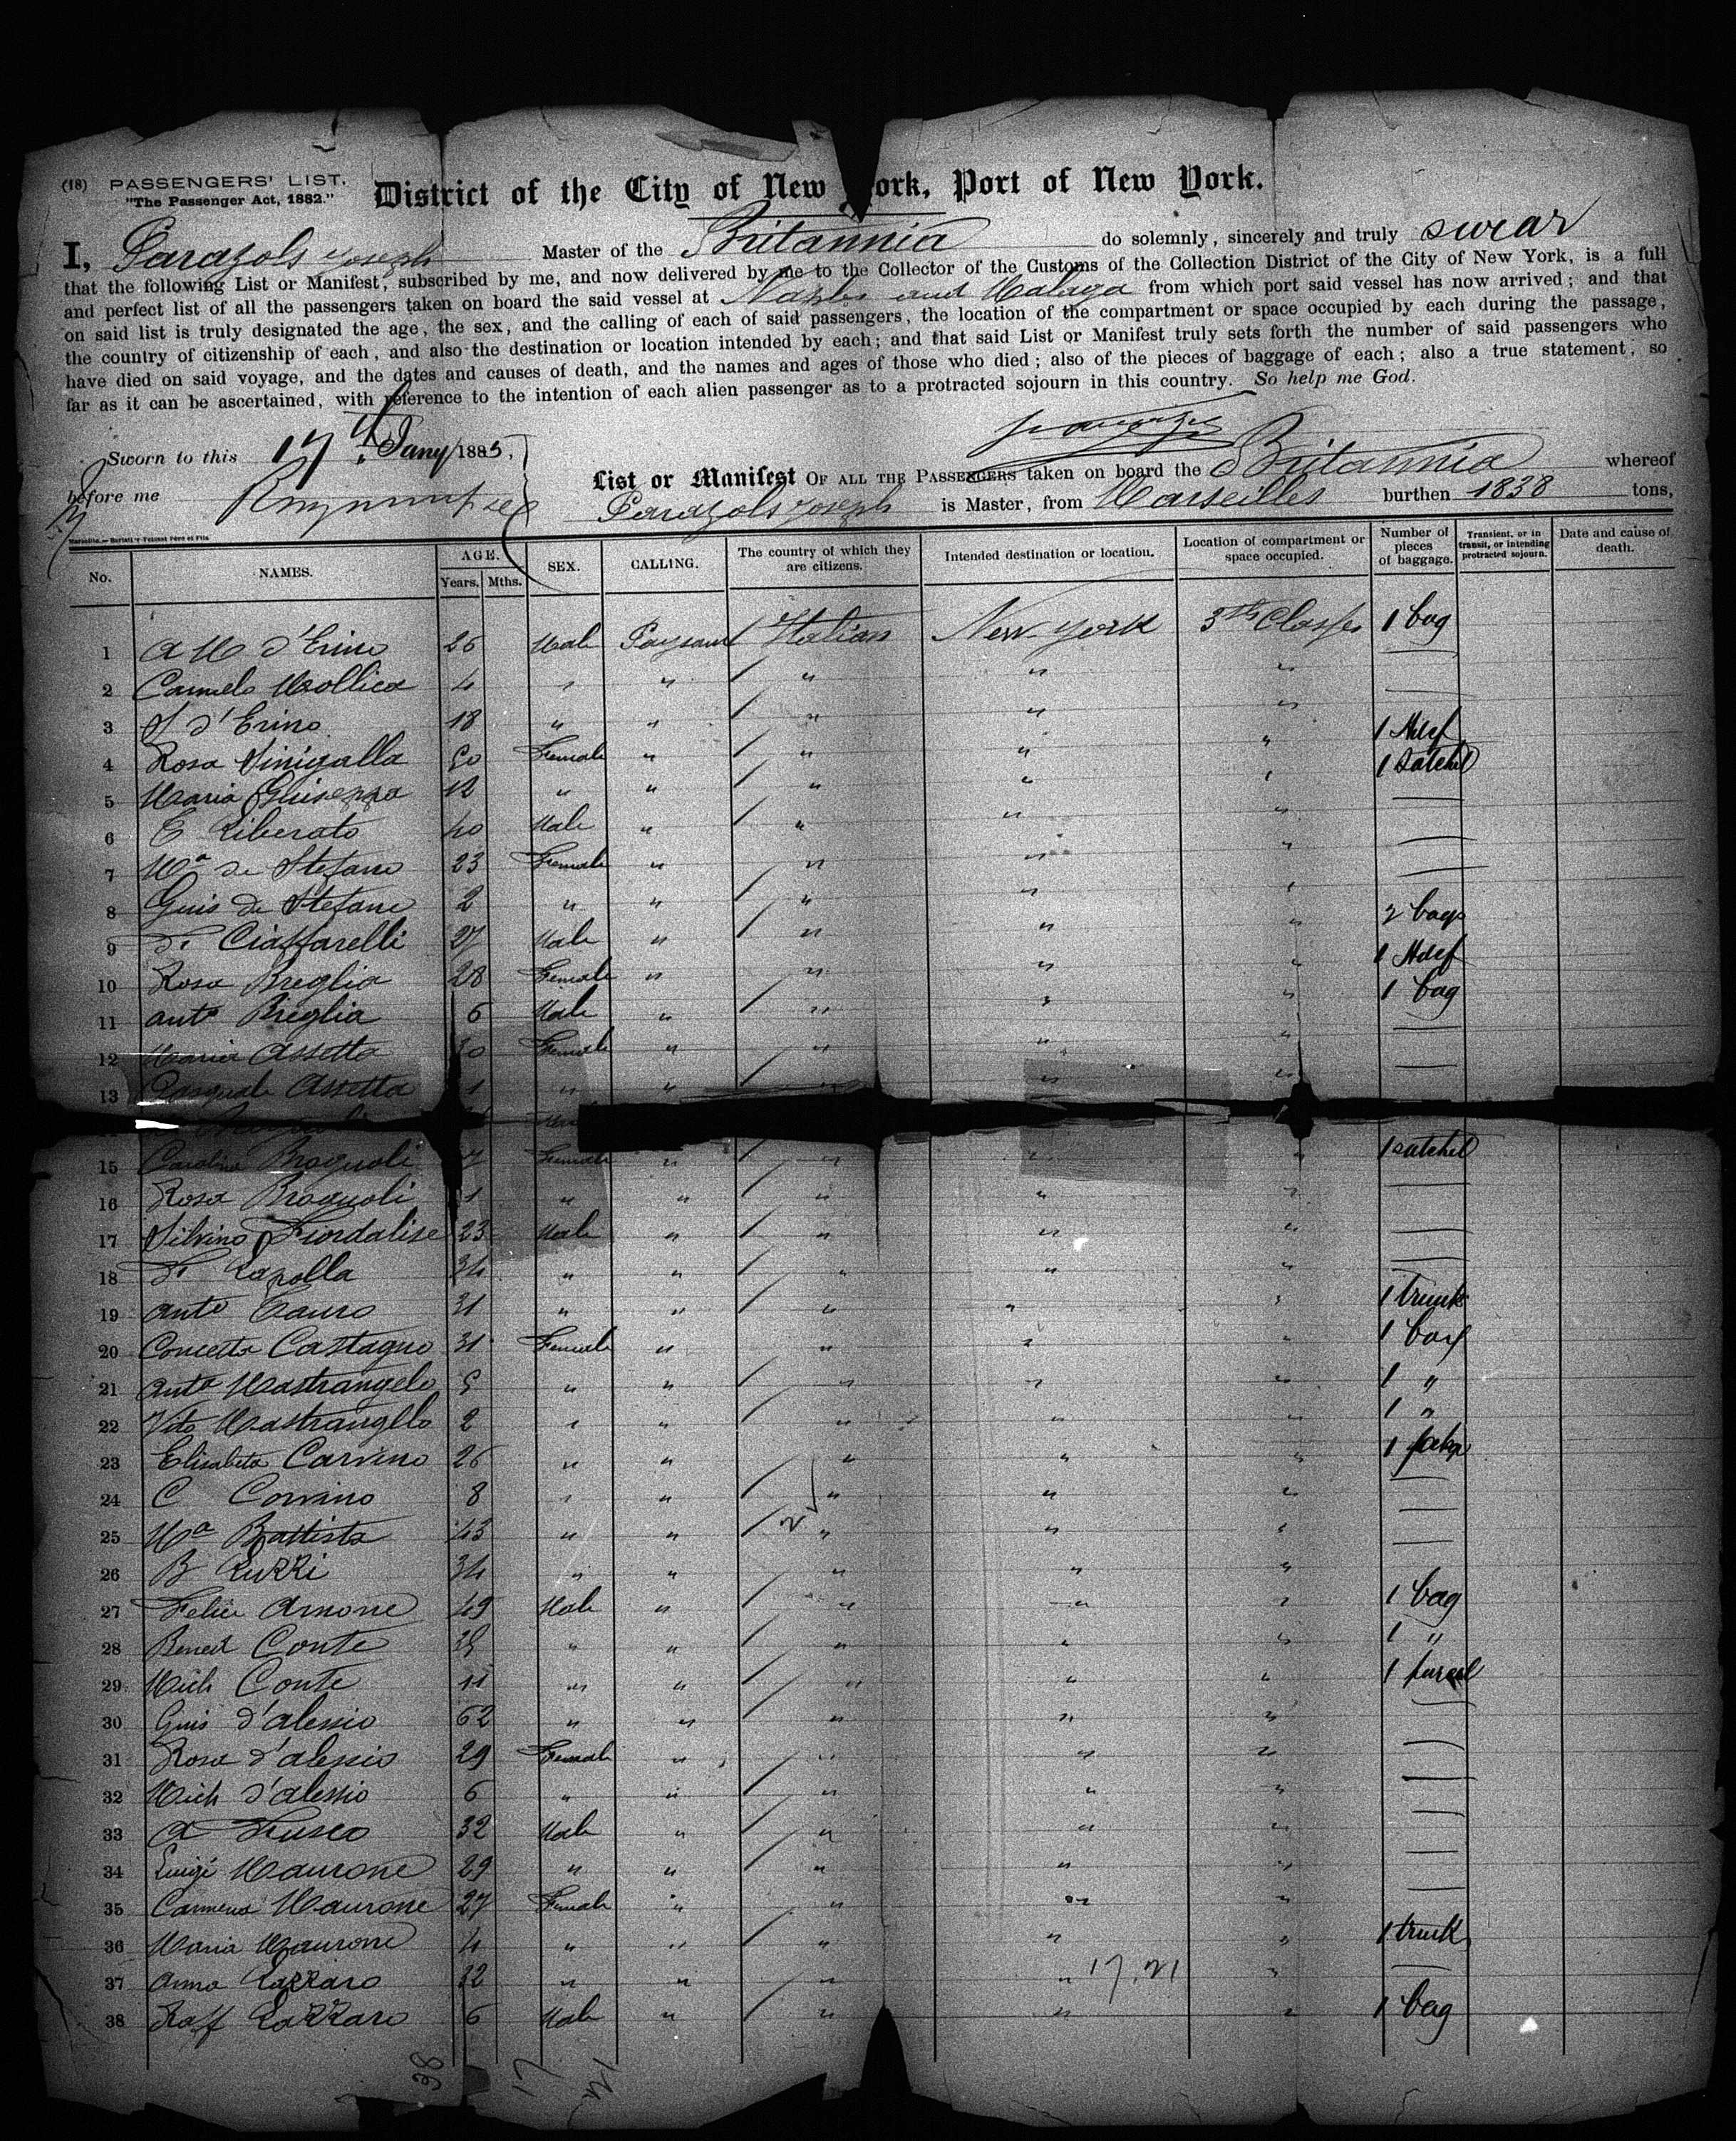 (18) PASSENGERS' LIST.
"The Passenger Act, 1882."
District of the City of New York, Port of New York.
I, Parazols Joseph Master of the Britannia do solemnly, sincerely and truly swear
that the following List or Manifest, subscribed by me, and now delivered by me to the Collector of the Customs of the Collection District of the City of New York, is a full
and perfect list of all the passengers taken on board the said vessel at Naples and Malaga from which port said vessel has now arrived; and that
on said list is truly designated the age, the sex, and the calling of each of said passengers, the location of the compartment or space occupied by each during the passage,
the country of citizenship of each, and also the destination or location intended by each; and that said List or Manifest truly sets forth the number of said passengers who
have died on said voyage, and the dates and causes of death, and the names and ages of those who died; also of the pieces of baggage of each; also a true statement, so
far as it can be ascertained, with reference to the intention of each alien passenger as to a protracted sojourn in this country. So help me God.
Sworn to this 17th Jany 1885,
before me
List or Manifest OF ALL THE PASSENGERS taken on board the Britannia whereof
Parazols Joseph is Master, from Marseilles burthen 1838 tons,
No. NAMES. AGE. Years. Mths. SEX. CALLING. The country of which they are citizens. Intended destination or location. Location of compartment or space occupied. Number of pieces of baggage. Transient, or in transit, or intending protracted sojourn. Date and cause of death.
1 A M d'Erino 26 Male Paysant / Italian New-York 3th Classes 1 bag
2 Carmelo Mollica 4 " " / " " " —
3 S d'Erino 18 " " / " " " —
4 Rosa Sinigalla 50 Female " / " " " 1 Hdcf
5 Maria Guiseppa 12 " " / " " " 1 satchel
6 E Liberato 40 Male " / " " " —
7 Ma de Stefano 23 Female " / " " " —
8 Guis de Stefano 2 " " / " " " —
9 Ciaffarelli 27 Male " / " " " 2 bags
10 Rosa Breglia 28 Female " / " " " 1 Hdcf
11 anto Breglia 6 Male " / " " " 1 bag
12 Maria Assetta 30 Female " / " " " —
13 Pasquale Assetta 1 " " / " " " —
15 Carolina Brognoli Female " / " " 1 satchel
16 Rosa Brognoli 1 " " / " " " —
17 Silvino Fiordalise 23 Male " / " " " —
18 Lapolla 34 " " / " " " —
19 anto Cauro 31 " " / " " " 1 trunk
20 Concetta Castagno 31 Female " / " " " 1 box
21 anta Mastrangelo 5 " " / " " " 1 "
22 Vito Mastrangelo 2 " " / " " " 1 "
23 Elisabeta Carvino 26 " " / " " "
24 C Corvino 8 " " / " " " —
25 Ma Battista 43 " " / " " " —
26 B Luzzi 34 " " / " " " —
27 Felice Arnone 49 Male " / " " " 1 bag
28 Bened Conte " " / " " " 1 "
29 Mich Conte 11 " " / " " " 1 parcel
30 Guis d'alessio 62 " " / " " " —
31 Rosa d'alessio 29 Female " / " " " —
32 Mich d'alessio 6 " " / " " " —
33 A Fusco 32 Male " / " " " —
34 Luigi Maurone 29 " " / " " " —
35 Carmena Maurone 27 Female " / " " " —
36 Maria Maurone 4 " " / " " " 1 trunk
37 anna Lazzaro 32 " " / " " 17.21 " —
38 Raf Lazzaro 6 Male " / " " " 1 bag
38 17 21